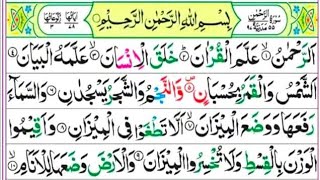 بِسْمِ اللّٰهِ الرَّحْمٰنِ الرَّحِيْمِ
اَلرَّحْمٰنُ عَلَّمَ الْقُرْاٰنَ خَلَقَ الْاِنْسَانَ عَلَّمَهُ الْبَيَانَ
اَلشَّمْسُ وَالْقَمَرُ بِحُسْبَانٍ وَّالنَّجْمُ وَالشَّجَرُ يَسْجُدَانِ وَالسَّمَآءَ
رَفَعَهَا وَوَضَعَ الْمِيْزَانَ اَلَّا تَطْغَوْا فِى الْمِيْزَانِ وَاَقِيْمُوا
الْوَزْنَ بِالْقِسْطِ وَلَا تُخْسِرُوا الْمِيْزَانَ وَالْاَرْضَ وَضَعَهَا لِلْاَنَامِ